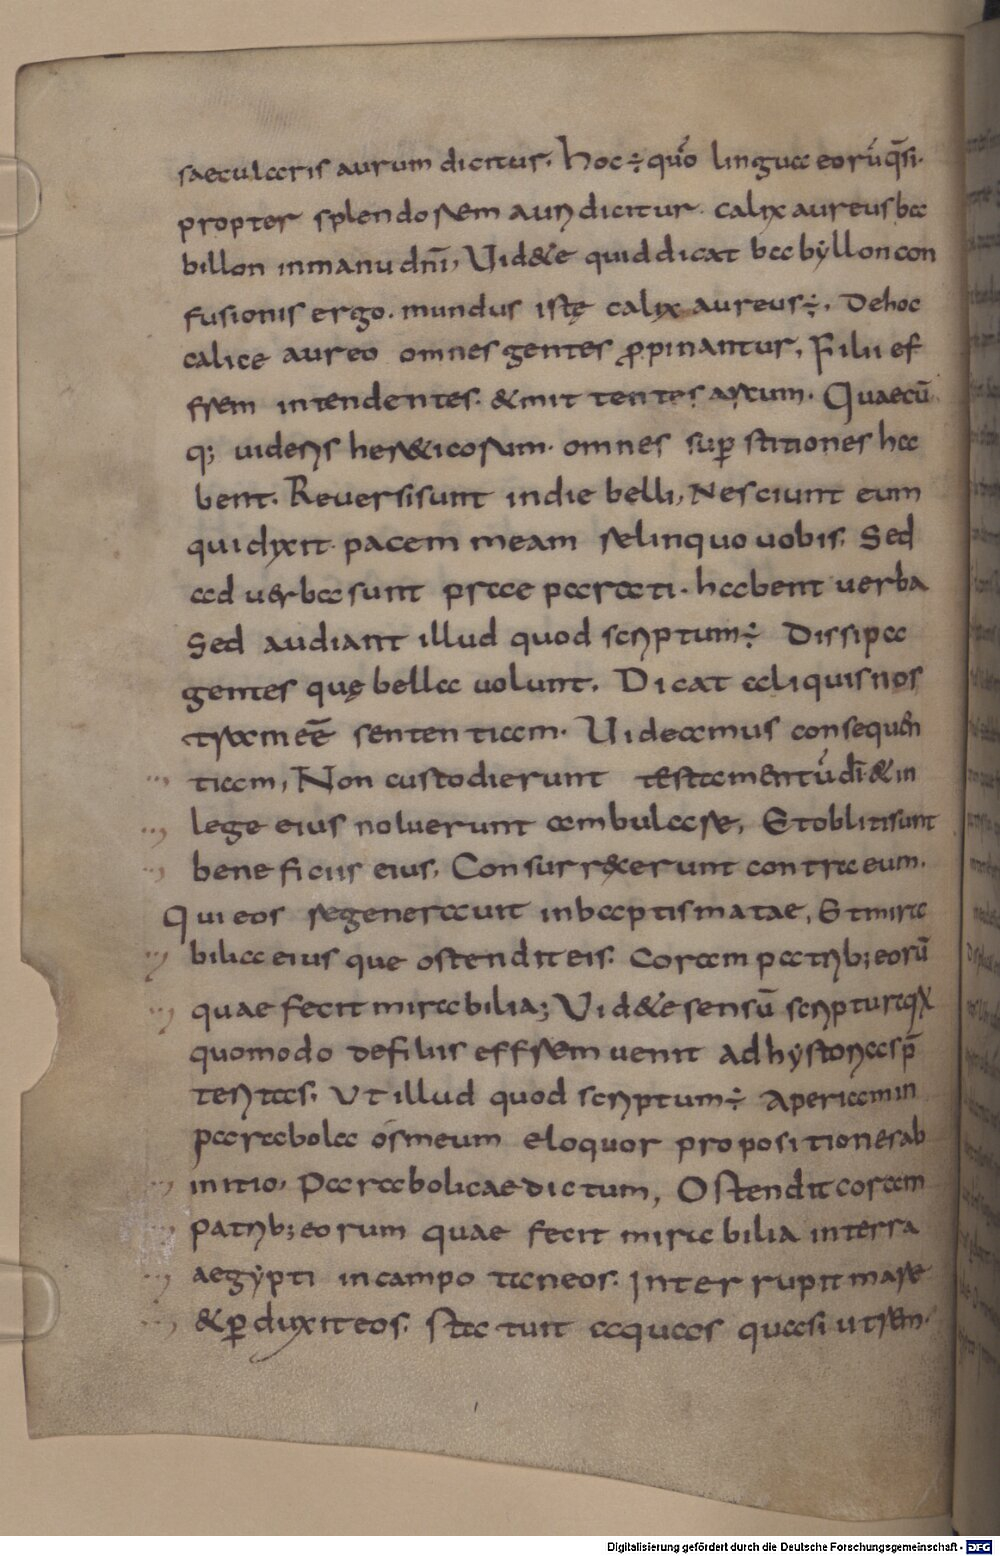 saecularis aurum dicitur. hoc ÷ quo͂ lingua eorū q̄si.
propter splendorem auri dicitur. calix aureus ba
billon in manu dn̄i, Uid&e quid dicat babyllon con
fusionis ergo. mundus iste calix aureus ÷. De hoc
calice aureo omnes gentes ꝓpinantur, Filii ef
frem intendentes. & mittentes arcum. Quaecū
q; uideris her&icorum. omnes suꝑstitiones ha
bent. Reuersi sunt in die belli, Nesciunt eum
qui dixit. pacem meam relinquo uobis. Sed
ad uerba sunt praeparati. habent uerba
Sed audiant illud quod scriptum ÷ Dissipa
gentes quę bella uolunt. Dicat aliquis nos
tram eē sententiam. Uideamus consequen
tiam, Non custodierunt testamentū dī & in
lege eius noluerunt ambulare, Et obliti sunt
beneficiis eius, Consurr&erunt contra eum.
Qui eos regenerauit in baptismatae, Et mira
bilia eius que ostendit eis. Coram patrib; eorū
quae fecit mirabilia; Uid&e sensū scripturaq̄
quomodo de filiis effrem uenit ad hystorias p̄
teritas. Ut illud quod scriptum ÷ Aperiam in
parabola os meum eloquor propositiones ab
initio. Parabolicae dictum, Ostendit coram
patrib; eorum quae fecit mirabilia in terra
aegypti in campo taneos. Interrupit mare
& ꝑduxit eos. statuit aquas quasi utrem.
Digitalisierung gefördert durch die Deutsche Forschungsgemeinschaft - DFG